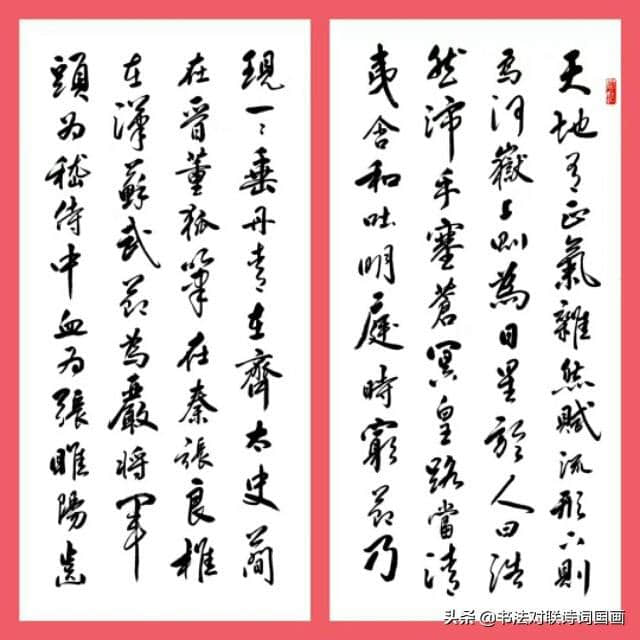 天地有正氣雜然賦流形下則
為河嶽上則為日星於人曰浩
然沛乎塞蒼冥皇路當清
夷含和吐明庭時窮節乃
現一々垂丹青在齊太史簡
在晉董狐筆在秦張良椎
在漢蘇武節為嚴將軍
頭為嵇侍中血為張睢陽齒
头条 @书法对联诗词国画